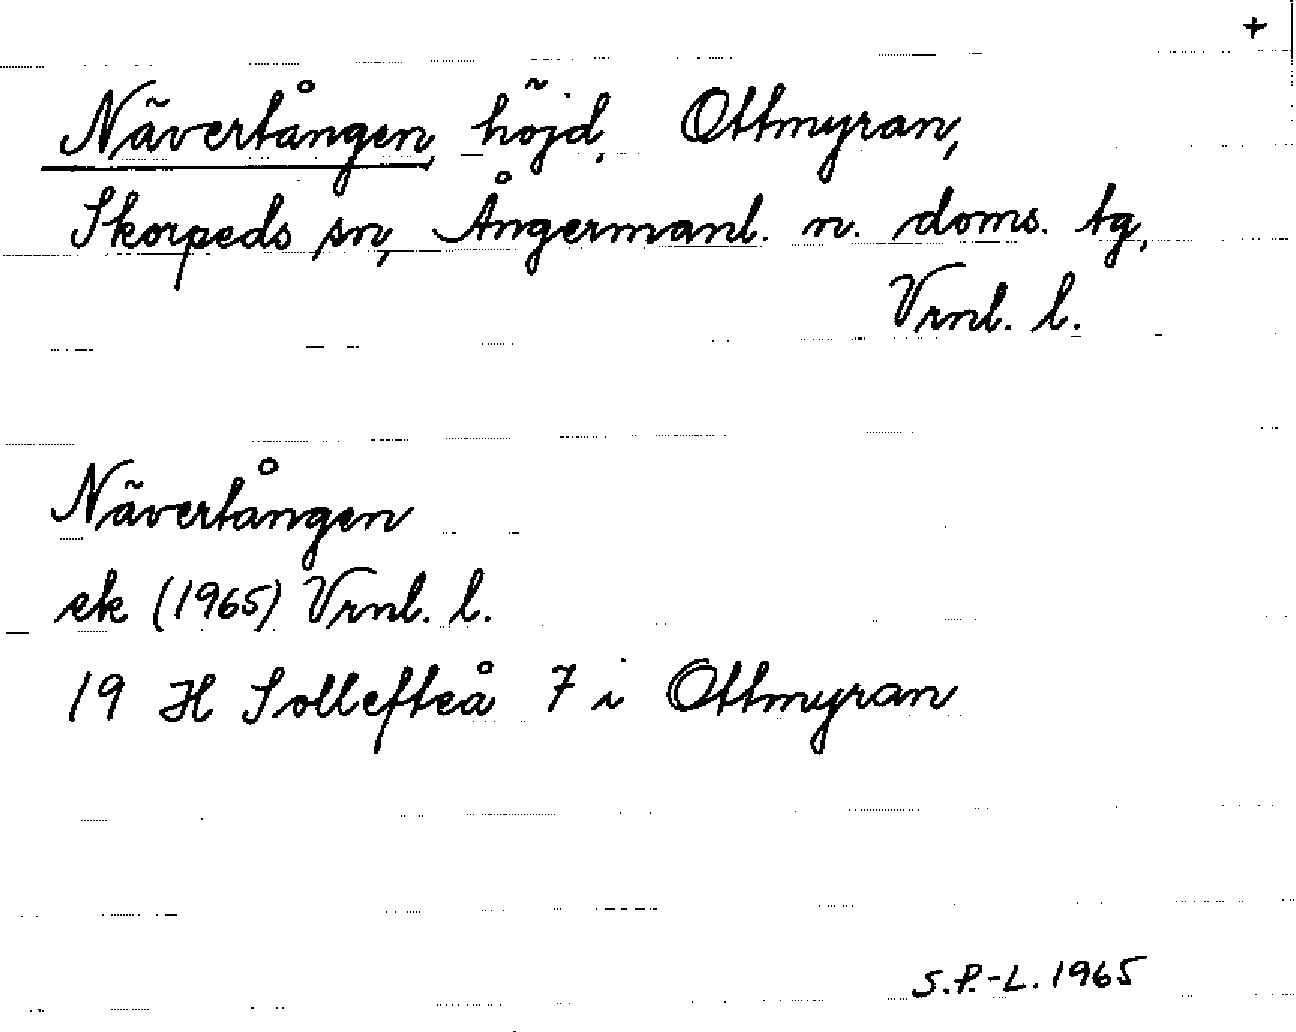 +
Nävertången, höjd, Ottmyran,
Skorpeds sn, Ångermanl. n. doms. tg,
Vrnl. l.
Nävertången
ek (1965) Vrnl. l.
19 H Sollefteå 7 i Ottmyran
S.P.-L. 1965